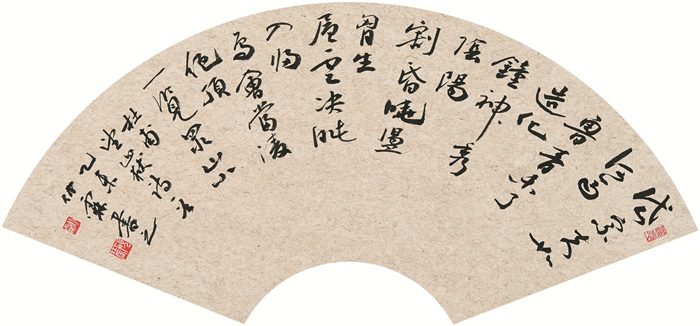 岱宗夫如
何齊
魯青未了
造化
鐘神秀
陰陽
割昏曉盪
胸生
層雲決眥
入歸
鳥會當凌
絕頂
一覽眾山小
杜甫